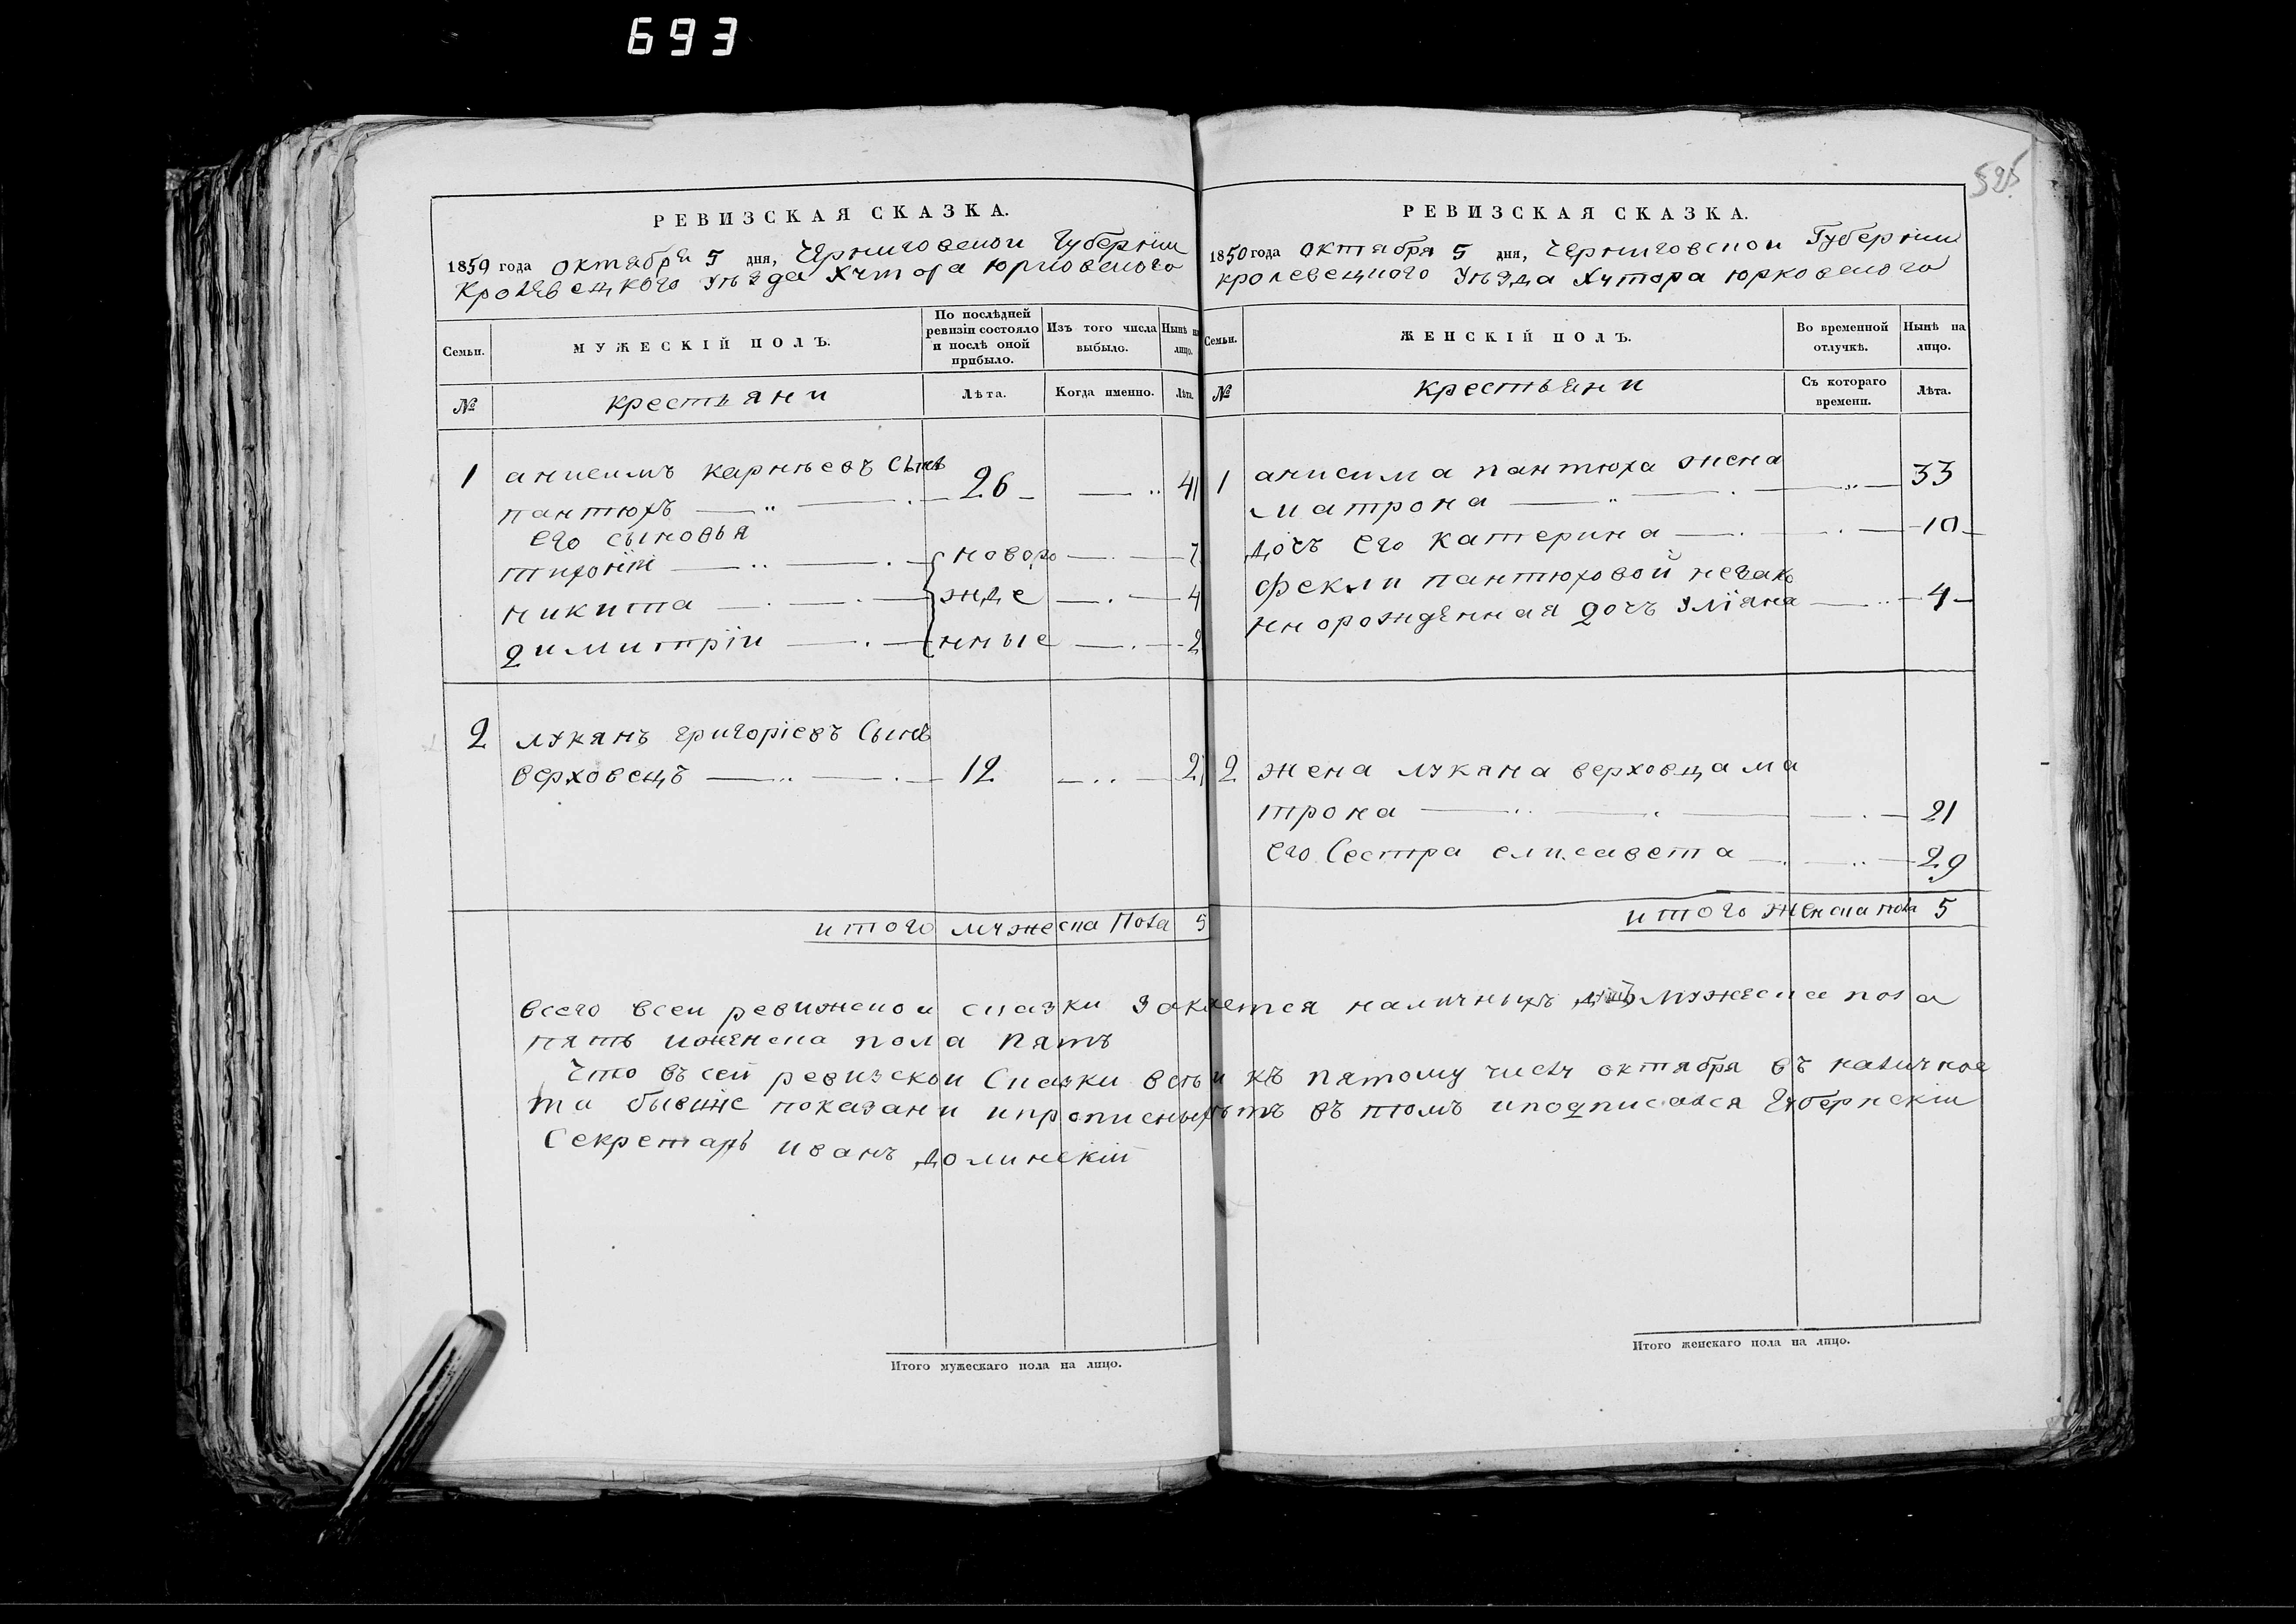 693
525
РЕВИЗСКАЯ СКАЗКА.
1850 года октября 5 дня, Черниговской Губерніи
Кролевецкого уѣзда Хутора юрковского
Семьи.
МУЖЕСКІЙ ПОЛЪ.
По послѣдней ревизіи состояло и послѣ оной прибыло.
Изъ того числа выбыло.
Нынѣ на лицо.
№
крестьяни
Лѣта.
Когда именно.
Лѣта.
1 анисимъ карнѣевъ Сынъ
пантюхъ 26 41
его сыновья
тихоній новоро 7
никита жде 4
димитріи нные 2
2 лукянъ григоріевъ Сынъ
верховецъ 12 27
итого мужеска Пола 5
РЕВИЗСКАЯ СКАЗКА.
1850 года октября 5 дня, Черниговской Губерніи
кролевецкого Уѣзда Хутора юрковского
Семьи.
ЖЕНСКІЙ ПОЛЪ.
Во временной отлучкѣ.
Нынѣ на лицо.
№
крестьяни
Съ котораго времени.
Лѣта.
1 анисима пантюха жена
матрона 33
дочъ его катерина 10
Фекли пантюховой незако
ннорожденная дочъ уліяна 4
2 жена лукяна верховца ма
трона 21
его Сестра елисавета 29
итого женска пола 5
всего всеи ревижской сказки наличныхъ душъ мужеска пола
пять иженска пола пять
Что въ сей ревизской Сказки всѣ и къ пятому числу октября въ налично
ти бывше показани ипрописныхъ въ томъ иподписался Губернскіи
Секретарь иванъ долинскій
Итого мужескаго пола на лицо.
Итого женскаго пола на лицо.